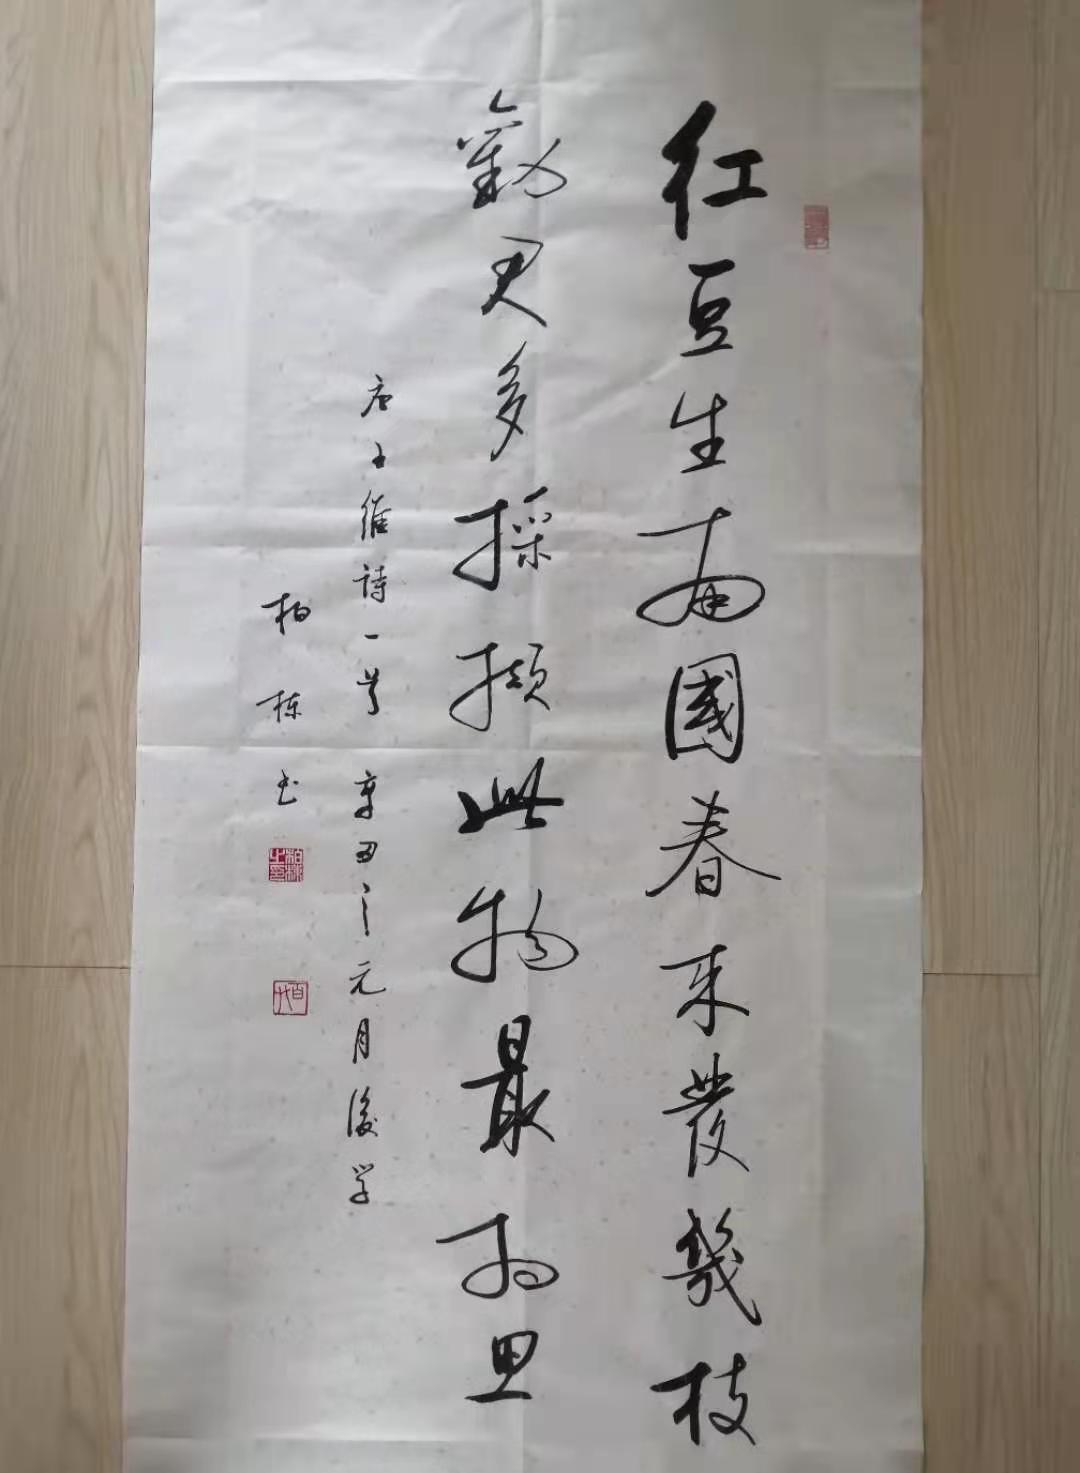 红豆生南國春来發幾枝
勸君多採擷此物最相思
唐王維詩一首 辛丑之元月後学
柏栋书